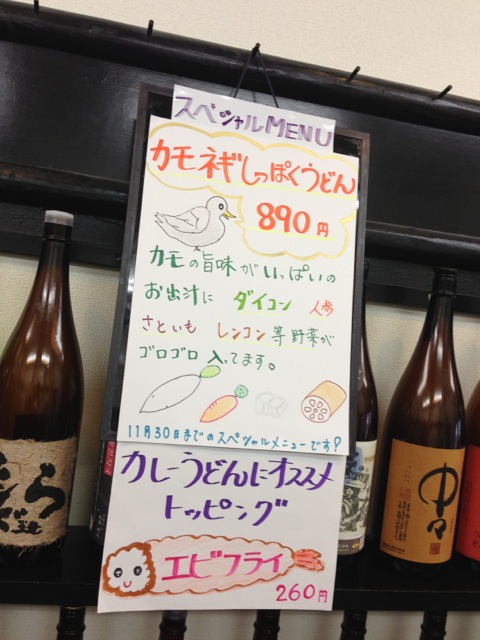 スペシャルMENU
カモネギしっぽくうどん
890円
カモの旨味がいっぱいの
お出汁に ダイコン 人参
さといも レンコン 等野菜が
ゴロゴロ 入ってます。
11月30日までのスペシャルメニューです?
カレーうどんにオススメ
トッピング
エビフライ
260円
中々